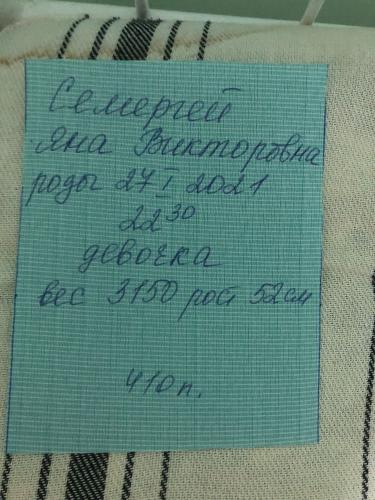 Семергей
Яна Викторовна
роды 27 I 2021
22³⁰
девочка
вес 3150 рост 52см
410п.